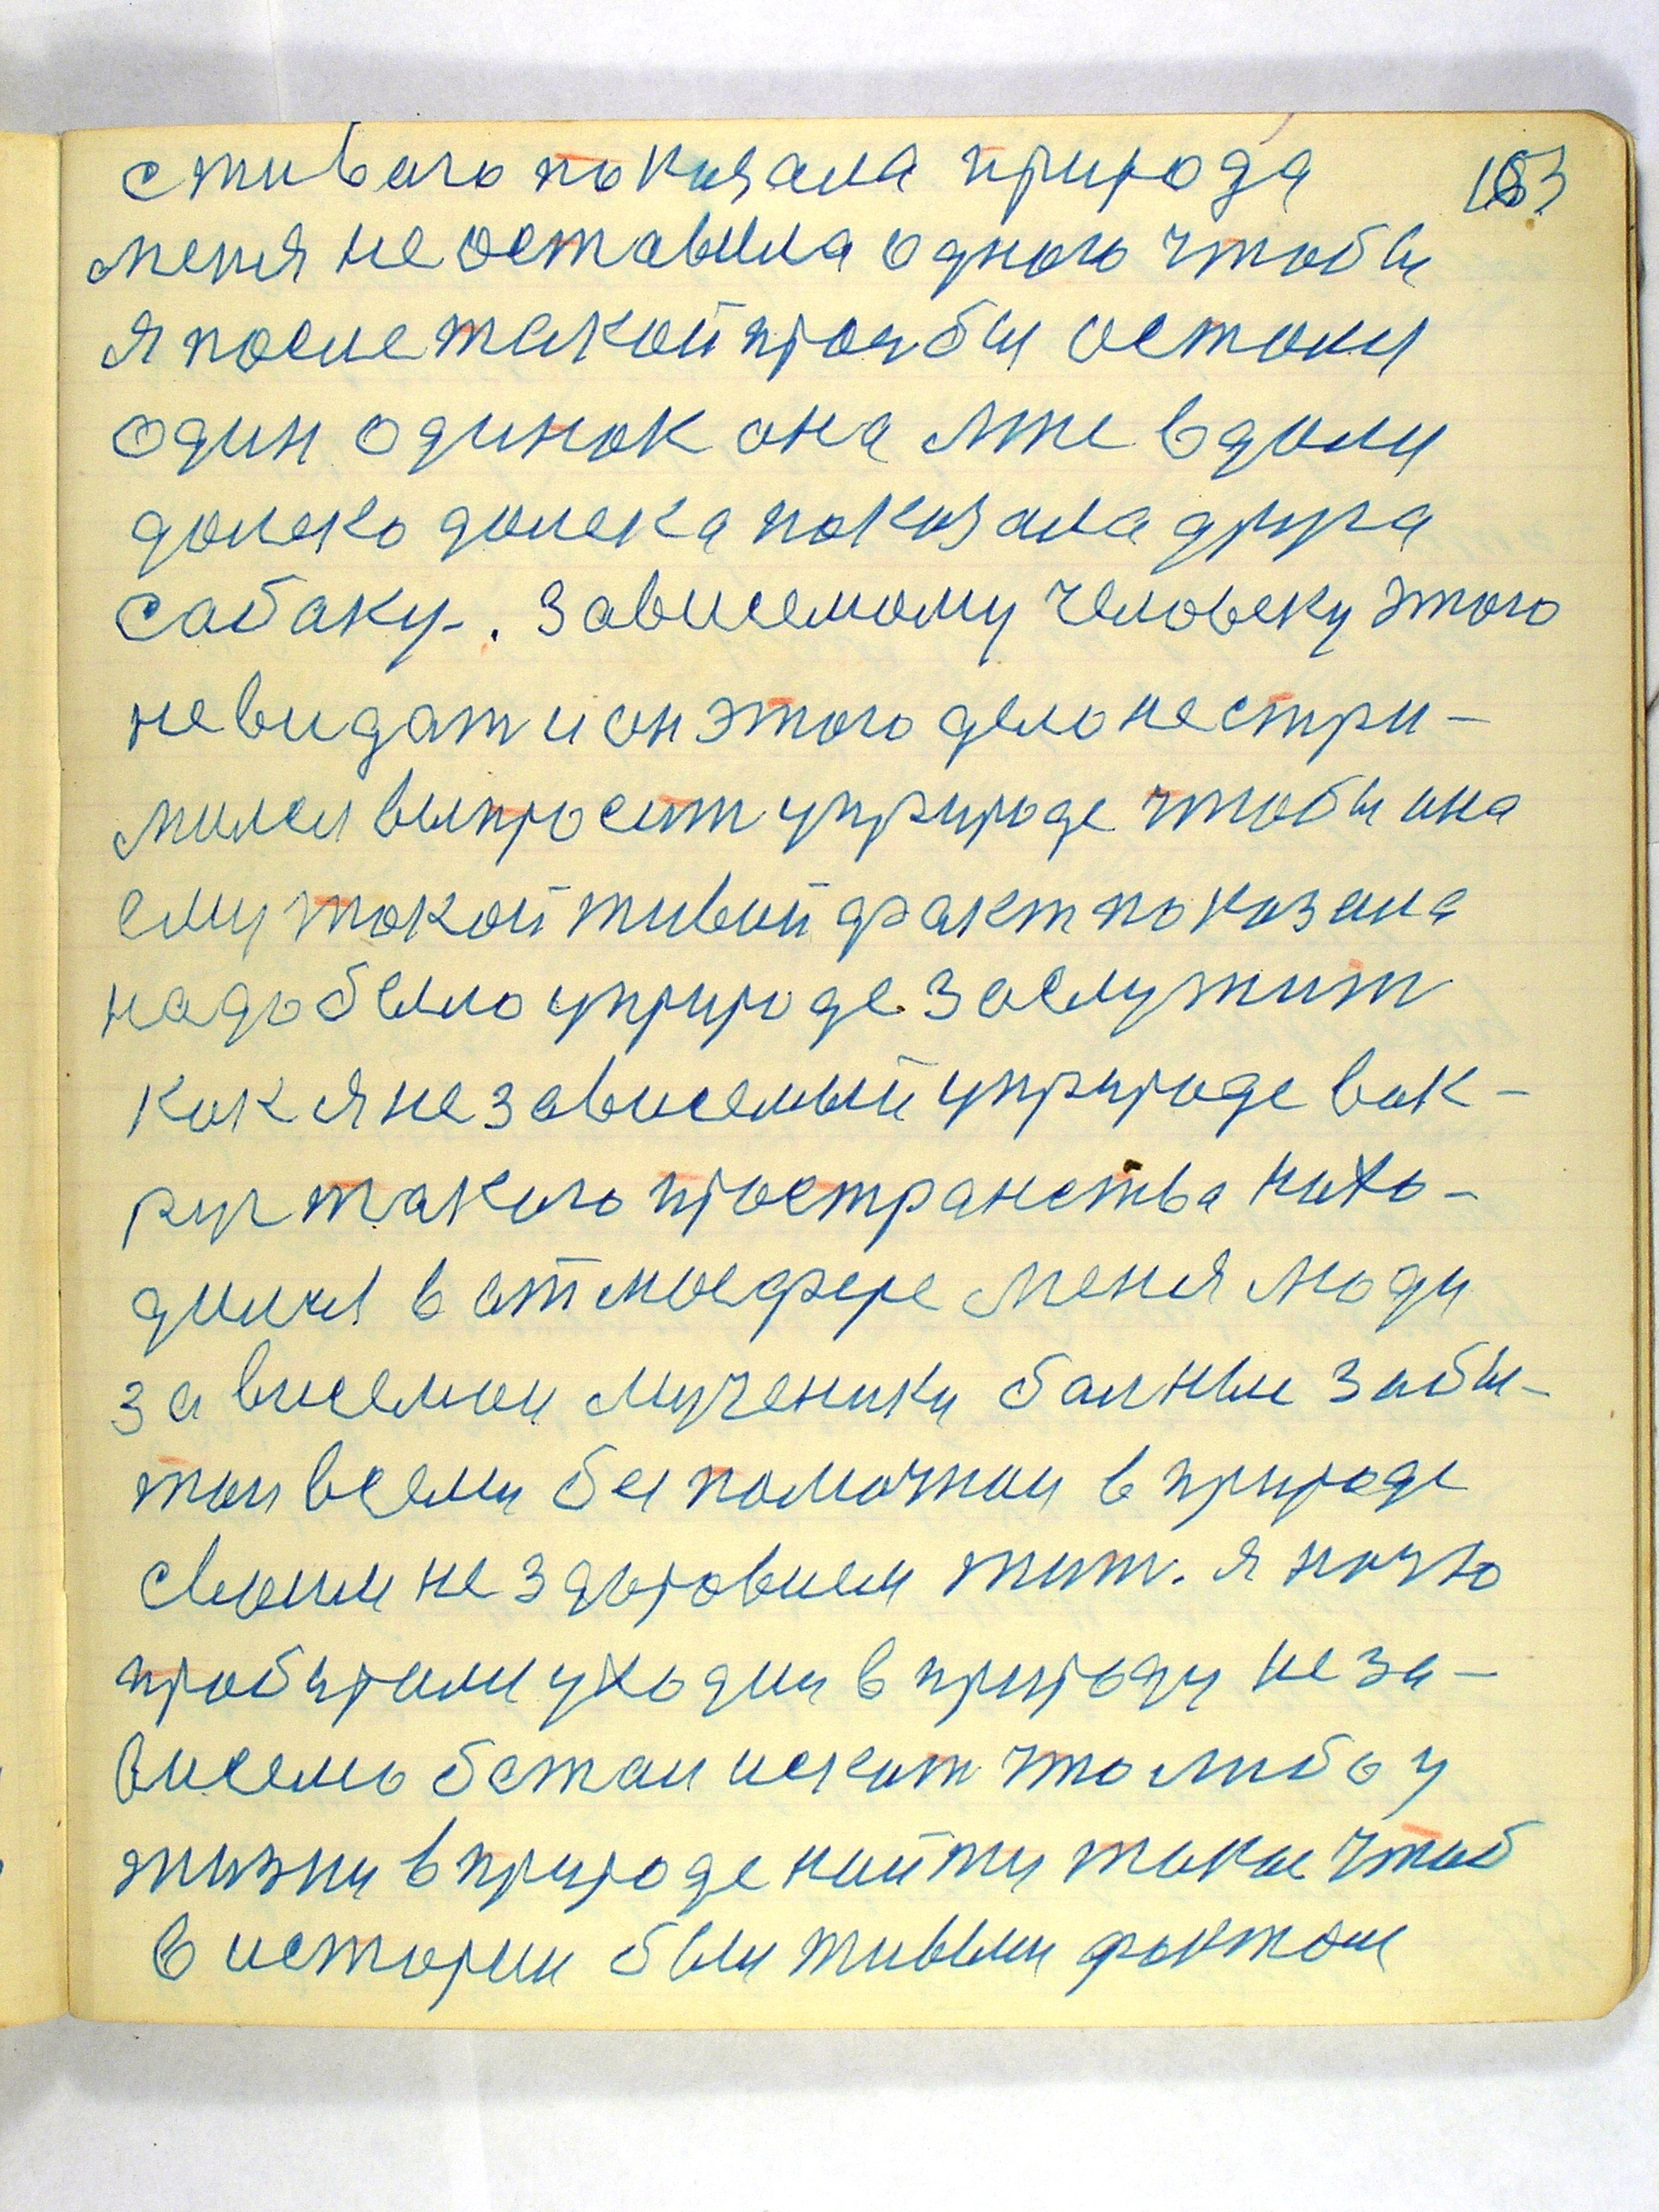 стивого показала природа 163
меня не оставила одного чтобы
я после такой прозбы осталця
один одинок она мне вдали
долеко долека показала друга
сабаку. Зависемому человеку этого
невидат и он этого дело нестри-
милса выпросит уприроде чтобы она
ему токой живой факт показала
надо было уприроде заслужит
как я не зависемый уприроде вок-
руг такого пространства нахо-
дился в атмосфере меня люди
зависемои мученики балные забы-
тои всеми беспомочнои в природе
своим не здоровием жит. я ночю
пробирался уходил в природу неза-
висемо бежал искат что либо у
жизни в природе найти такое чтоб
в истории был живым фактом